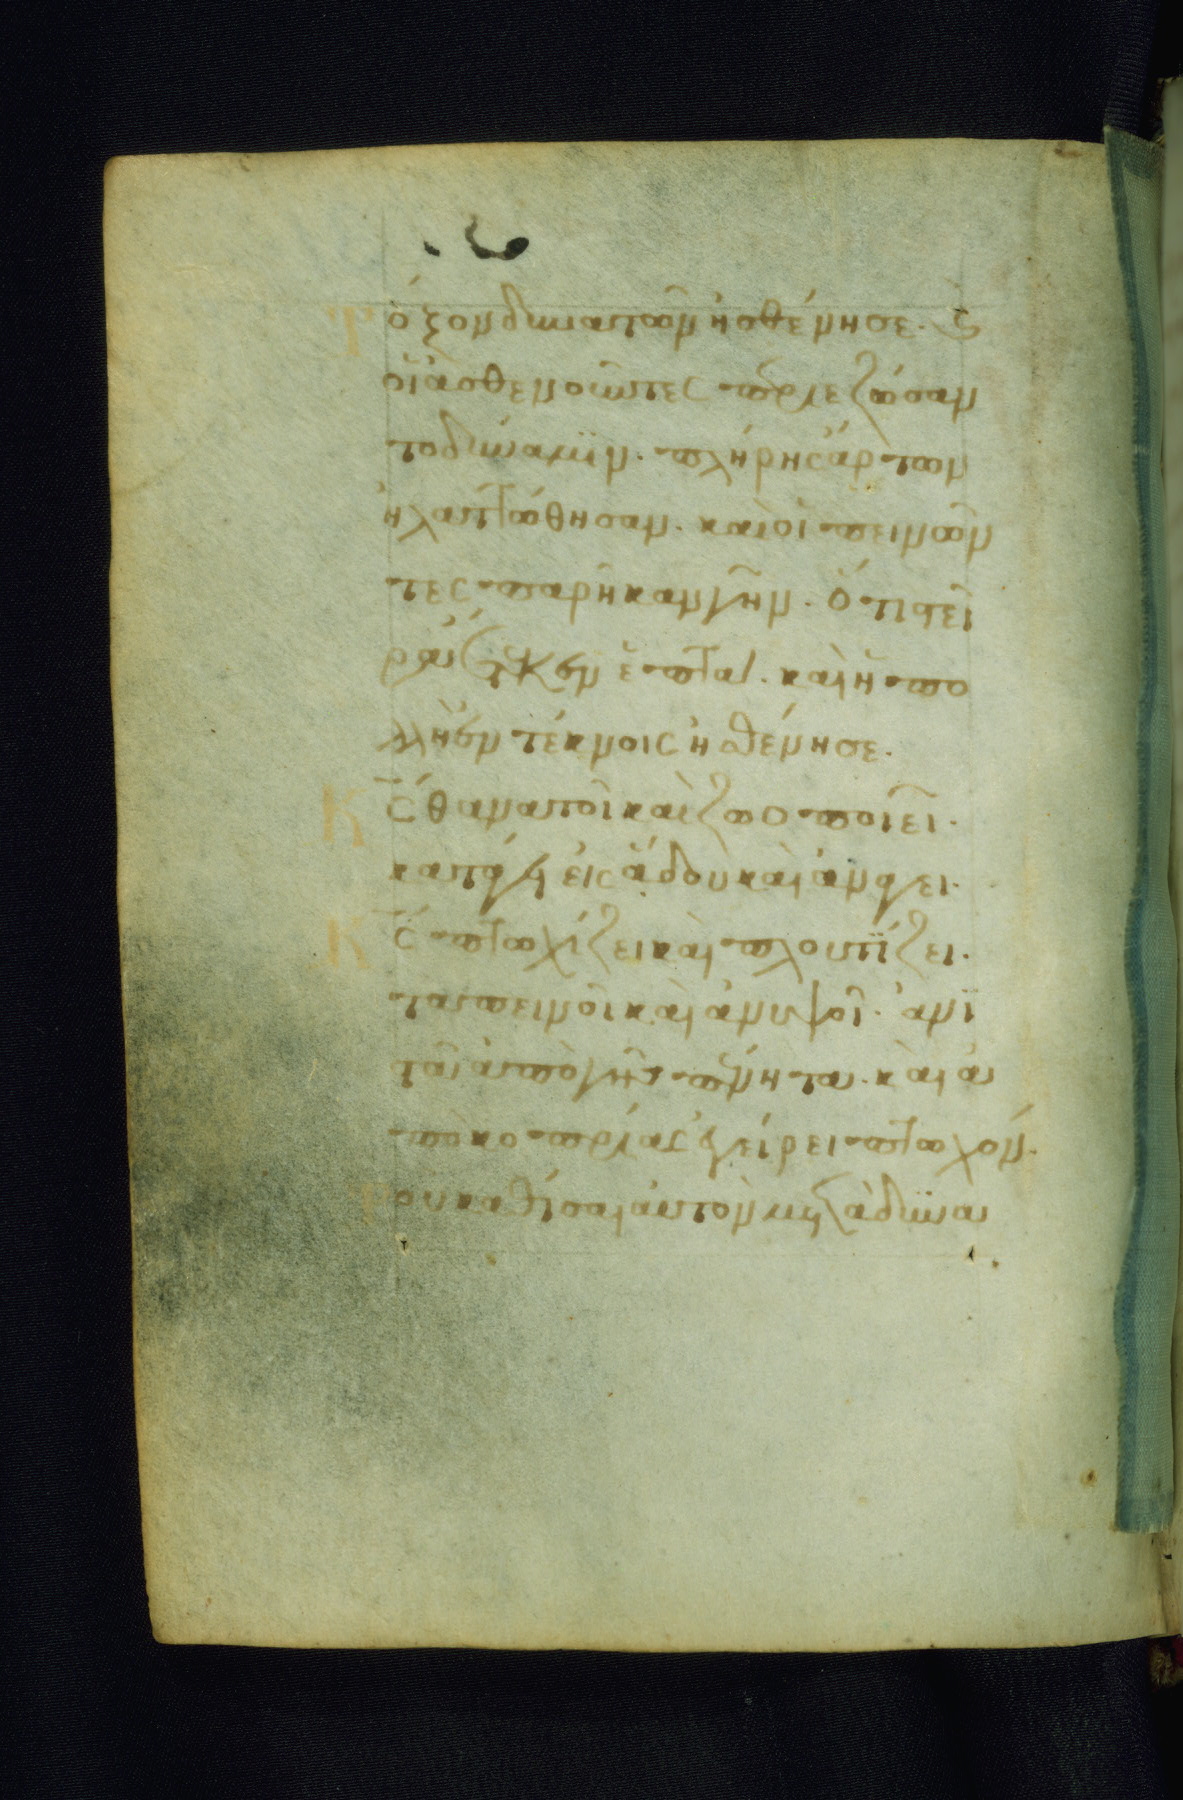 Τόξον δυνατῶν ἠσθένησε· κ(αὶ)
οἱ ἀσθενοῦντες περιεζώσαν
το δύναμϊν· πλήρης ἄρτων
ἠλαττώθησαν· καὶ οἱ πεινῶν
τες παρῆκαν γῆν· ὅτι στεῖ
ρα ἔτεκεν ἑπτά· καὶ ἡ πο
λλὴ ἐν τέκνοις ἠσθένησε·
Κ̅ς̅ θανατοῖ καὶ ζωοποιεῖ·
κατάγει εἰς ἅδου καὶ ἀνάγει·
Κ̅ς̅ πτωχίζει καὶ πλουτίζει·
ταπεινοῖ καὶ ἀνυψοῖ· ἀνϊ
στᾶ ἀπὸ γῆς πένητα· καὶ ἀ
πὸ κοπρίας ἐγείρει πτωχόν·
Τοῦ καθίσαι αὐτὸν μετὰ δυνα